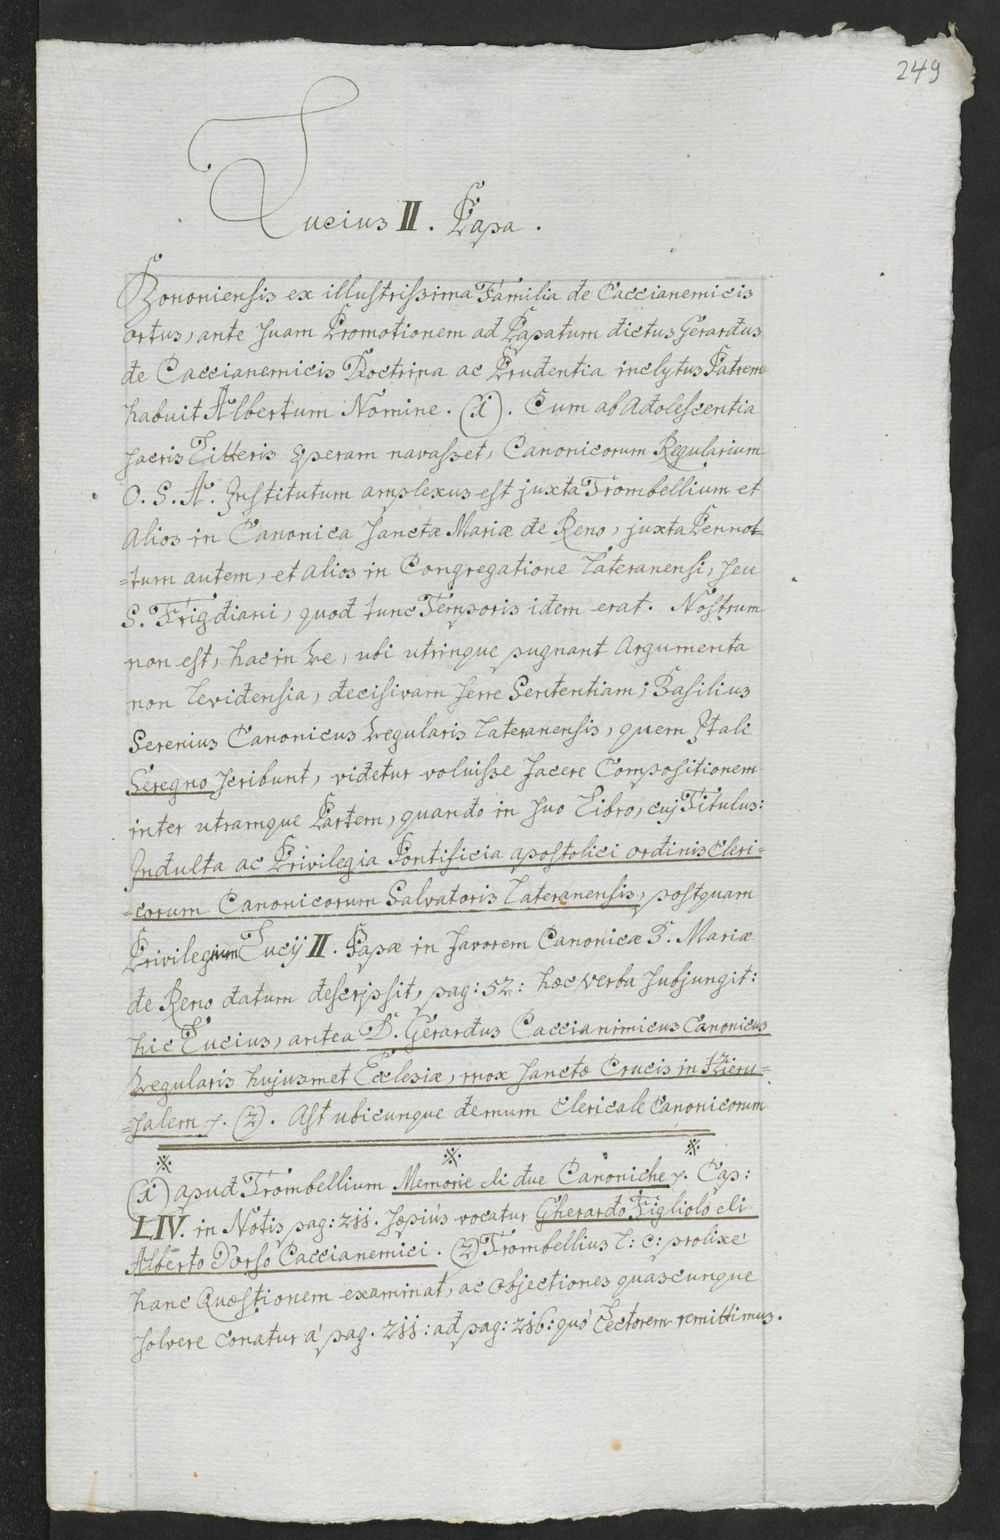 249
Lucius II. Papa.
Bononiensis ex illustrissima Familia de Caccianemicis
ortus, ante suam Promotionem ad Papatum dictus Gerardus
de Caccianemicis Doctrina ac Prudentia inclytus Patrem
habuit Albertum Nomine. (1). Cum ab Adolescentia
sacris Litteris operam navasset, Canonicorum Regularium
O. S. A. Institutum amplexus est juxta Trombellium et
alios in Canonica Sanctæ Mariæ de Reno, juxta Pennot-
=tum autem, et alios in Congregatione Lateranensi, seu
S. Frigdiani, quod tunc Temporis idem erat. Nostrum
non est, hac in re, ubi utrinque pugnant Argumenta
non levidensia, decisivam ferre Sententiam; Basilius
Serenius Canonicus Regularis Lateranensis, quem Itali
Seregno scribunt, videtur voluisse facere Compositionem
inter utramque Partem, quando in suo Libro, cuj Titulus:
Indulta ac Privilegia Pontificia apostolici ordinis Cleri-
=corum Canonicorum Salvatoris Lateranensis, postquam
Privilegium Lucij II. Papæ in favorem Canonicæ S. Mariæ
de Reno datum descripsit, pag: 52: hæc verba subjungit:
hic Lucius, antea D. Gerardus Caccianimicus Canonicus
Regularis hujusmet Ecclesiæ, mox Sanctæ Crucis in Hieru-
=salem &. (2). Ast ubicunque demum clericale Canonicorum
(1) apud Trombellium Memorie di due Canoniche &. Cap:
LIV. in Notis pag: 211. sæpiùs vocatur Gherardo Figliolo di
Alberto D'orso Caccianemici. (2) Trombellius l: c: prolixè
hanc Quæstionem examinat, ac objectiones quascunque
solvere conatur à pag. 211: ad pag: 216: quò Lectorem remittimus.